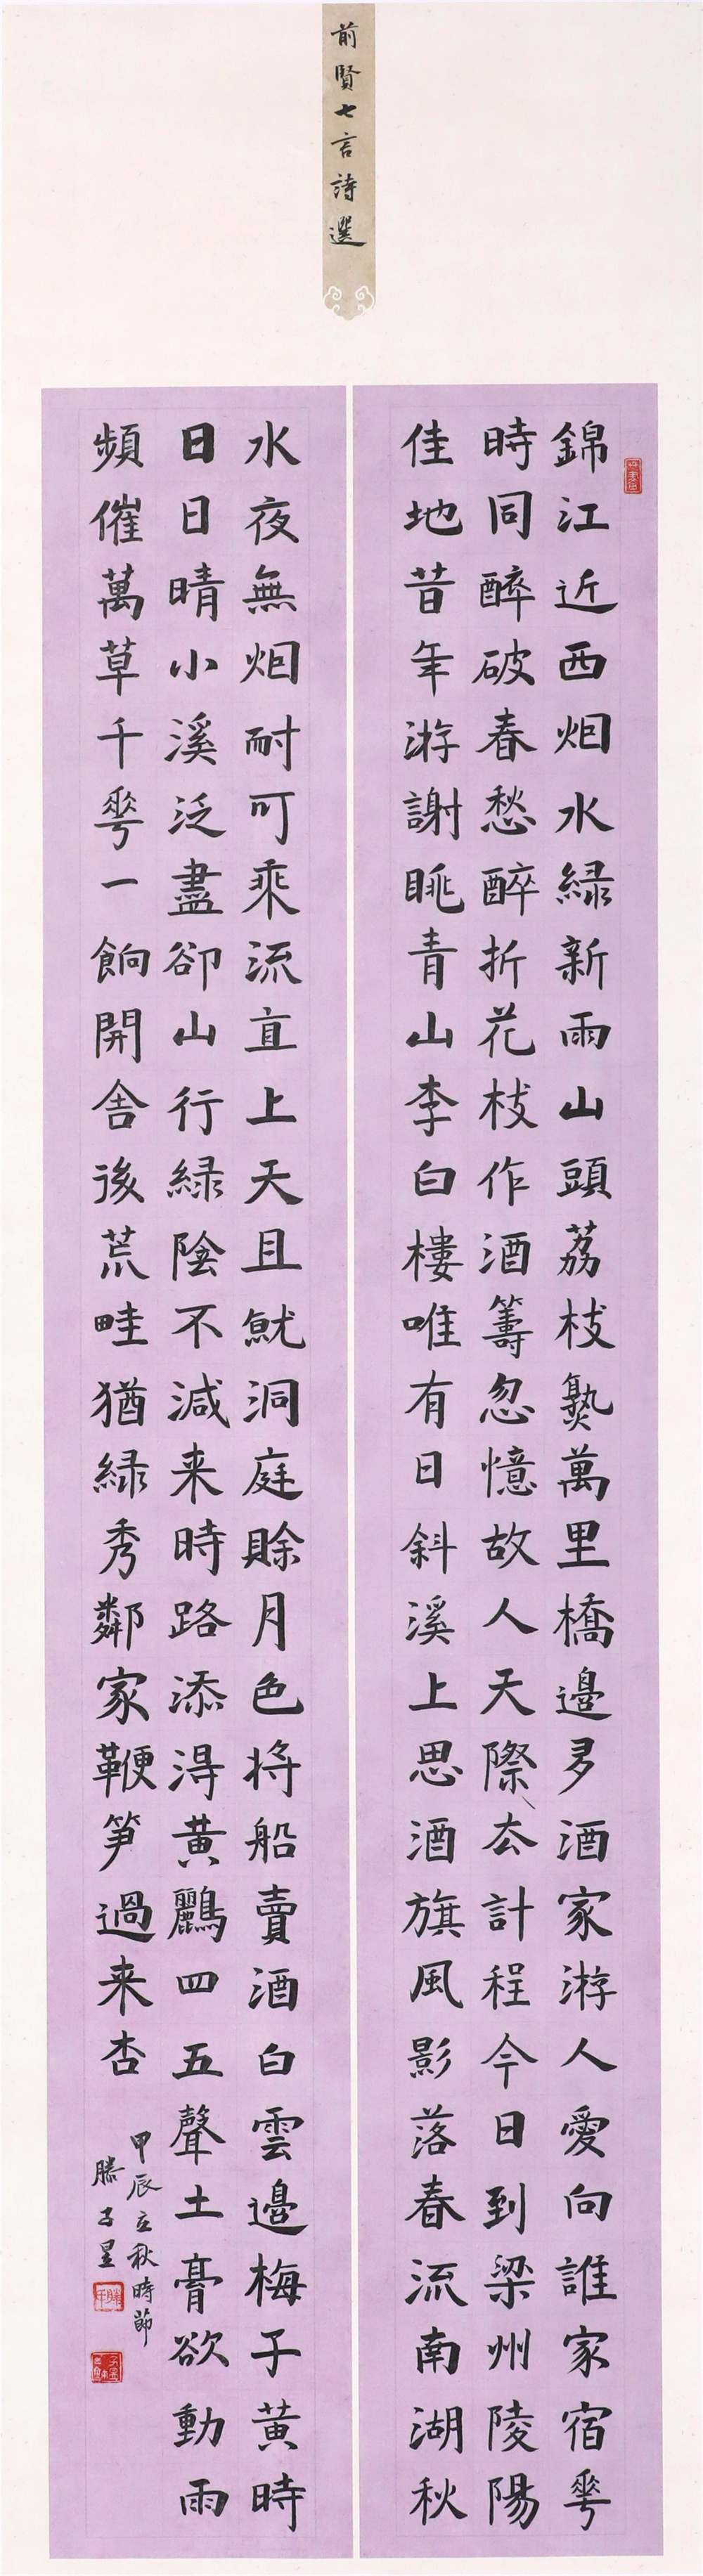 前賢七言詩選
錦江近西烟水綠新雨山頭荔枝熟萬里橋邊多酒家游人愛向誰家宿華
時同醉破春愁醉折花枝作酒籌忽憶故人天際去計程今日到梁州陵陽
佳地昔年游謝眺青山李白樓唯有日斜溪上思酒旗風影落春流南湖秋
水夜無烟耐可乘流直上天且就洞庭賒月色將船賣酒白雲邊梅子黃時
日日晴小溪泛盡卻山行綠陰不減来時路添得黃鸝四五聲土膏欲動雨
頻催萬草千華一餉開舍後荒畦猶綠秀鄰家鞭笋過来杏
甲辰立秋時節
滕子星